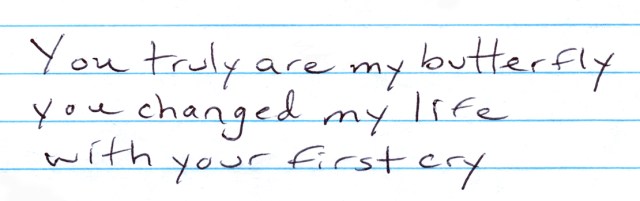 You truly are my butterfly
you changed my life
with your first cry